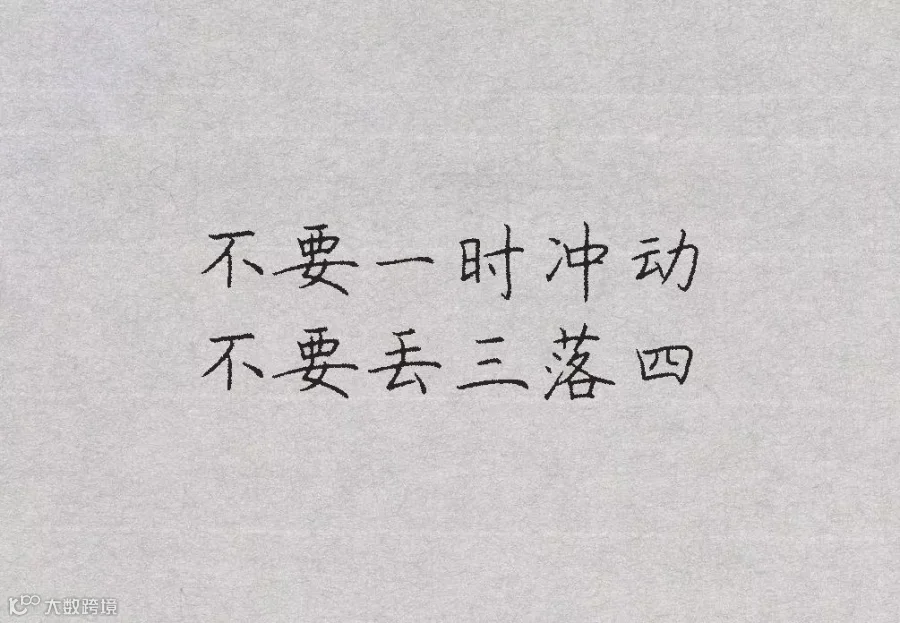 不要一时冲动
不要丢三落四
大数跨境